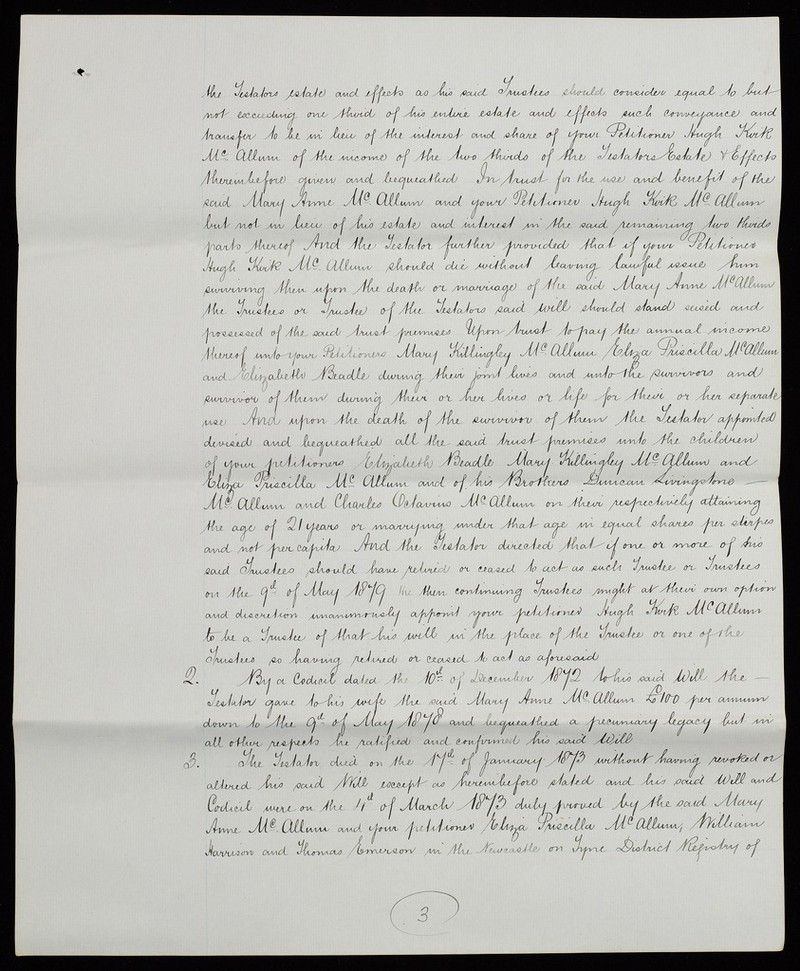 the Testators estate and effects as his said Trustees should consider equal to but
not exceeding one third of his entire estate and effects such conveyance and
transfer to be in lieu of the interest and share of your Petitioner Hugh Kirk
Mc Allum of the income of the two thirds of the Testators Estate & Effects
thereinbefore given and bequeathed In trust for the use and benefit of the
said Mary Anne Mc Allum and your Petitioner Hugh Kirk Mc Allum
but not in lieu of his estate and interest in the said remaining two thirds
parts thereof And the Testator further provided that if your Petitioner
Hugh Kirk Mc Allum should die without leaving lawful issue him
surviving then upon the death or marriage of the said Mary Anne McAllum
the Trustees or Trustee of the Testators said will should stand seised and
possessed of the said trust premises Upon trust to pay the annual income
thereof unto your Petitioners Mary Killingley Mc Allum Eliza Priscilla McAllum
and Elizabeth Beadle during their joint lives and unto the survivors and
survivor of them during their or her lives or life for their or her separate
use And upon the death of the survivor of them the Testator appointed
devised and bequeathed all the said trust premises unto the children
of your petitioners Elizabeth Beadle Mary Killingley Mc Allum and
Eliza Priscilla Mc Allum and of his Brothers Duncan Livingstone —
Mc Allum and Charles Octavius Mc Allum on their respectively attaining
the age of 21 years or marrying under that age in equal shares per stirpes
and not per capita And the Testator directed that if one or more of his
said Trustees should have retired or ceased to act as such Trustee or Trustees
on the 9th of May 1879 the then continuing Trustees might at their own option
and discretion unanimously appoint your petitioner Hugh Kirk McAllum
to be a Trustee of that his will in the place of the Trustee or one of the
Trustees so having retired or ceased to act as aforesaid
2. By a Codicil dated the 10th of December 1872 to his said Will the —
Testator gave to his wife the said Mary Anne Mc Allum £100 per annum
down to the 9th of May 1878 and bequeathed a pecuniary legacy but in
all other respects he ratified and confirmed his said Will
3. The Testator died on the 17th of January 1873 without having revoked or
altered his said Will except as hereinbefore stated and his said Will and
Codicil were on the 4th of March 1873 duly proved by the said Mary
Anne Mc Allum and your petitioner Eliza Priscilla Mc Allum, William
Harrison and Thomas Emerson in the Newcastle on Tyne District Registry of
3